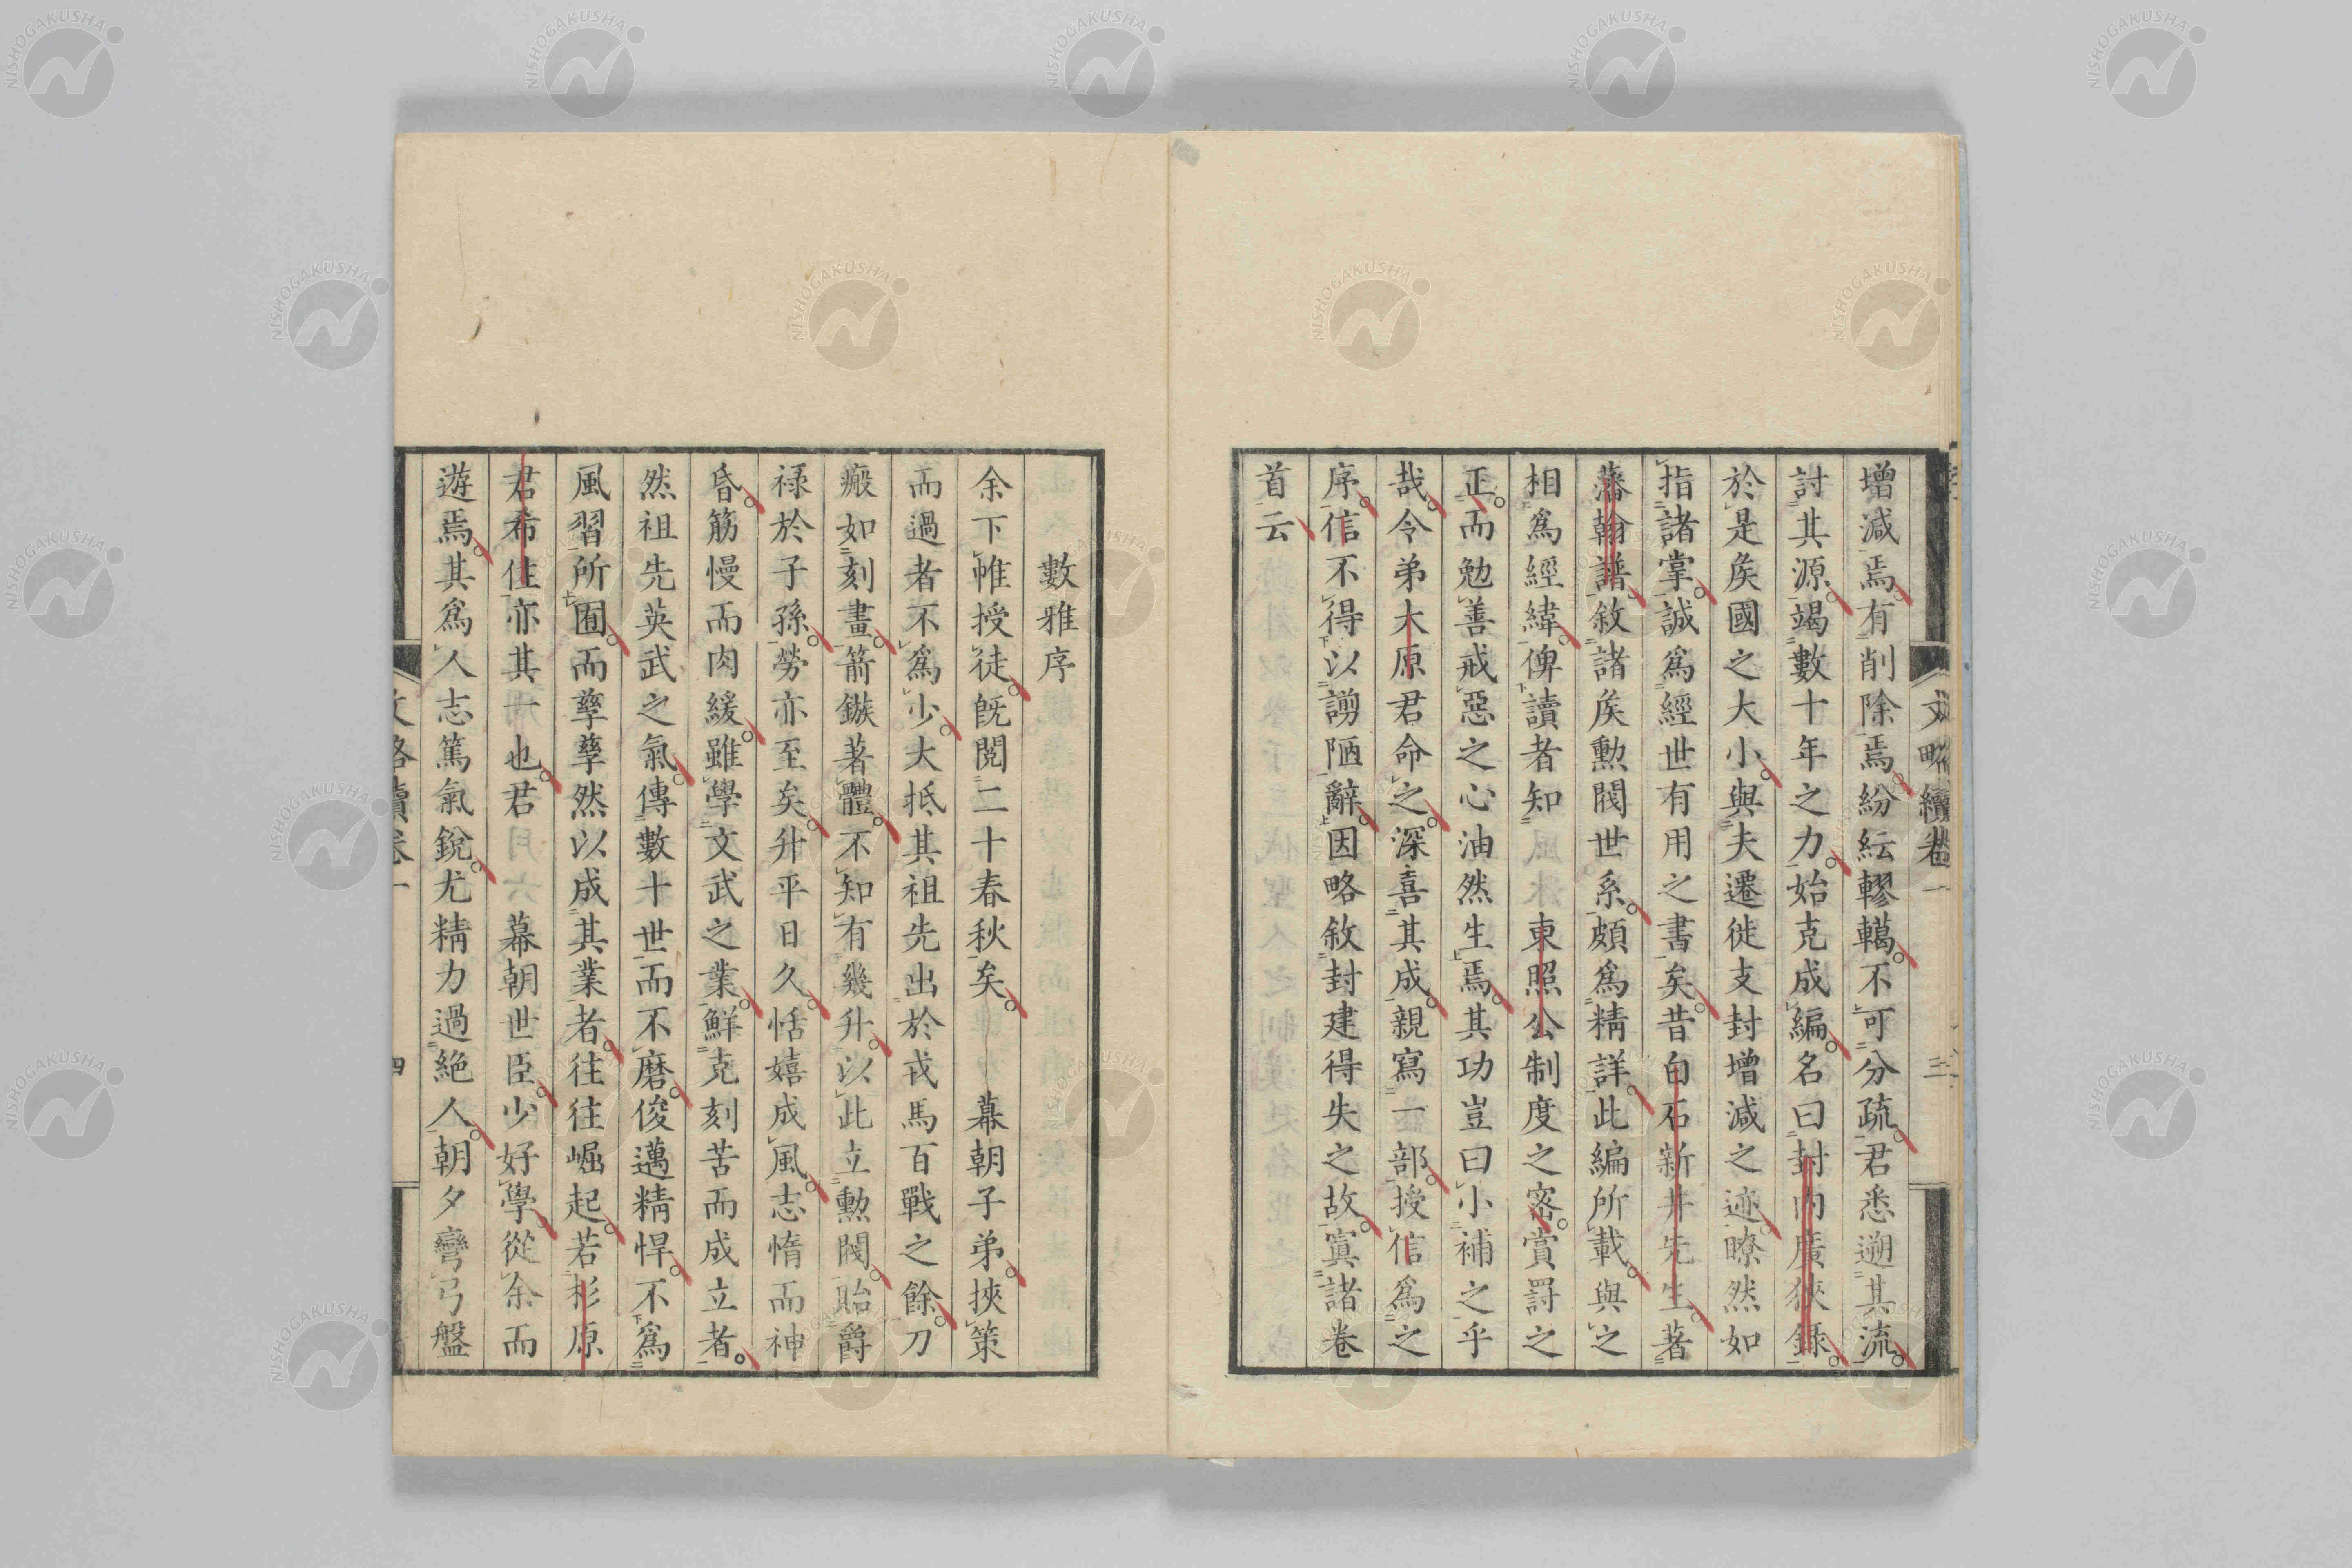 增減焉有削除焉紛紜轇轕不可分疏君悉遡其流
討其源竭數十年之力始克成編名曰封內廣狹錄
於是矦國之大小與夫遷徙支封增減之迹瞭然如
指諸掌誠爲經世有用之書矣昔白石新井先生著
藩翰譜敘諸矦勳閥世系頗爲精詳此編所載與之
相爲經緯俾讀者知 東照公制度之密賞罰之
正而勉善戒惡之心油然生焉其功豈曰小補之乎
哉令弟大原君命之深喜其成親寫一部授信爲之
序信不得以謭陋辭因略敘封建得失之故寘諸卷
首云
文略續卷一
三
數雅序
余下帷授徒旣閱二十春秋矣 幕朝子弟挾策
而過者不爲少大抵其祖先出於戎馬百戰之餘刀
瘢如刻畫箭鏃著體不知有幾升以此立勳閥貽爵
祿於子孫勞亦至矣升平日久恬嬉成風志惰而神
昏筋慢而肉緩雖學文武之業鮮克刻苦而成立者
然祖先英武之氣傳數十世而不磨俊邁精悍不爲
風習所囿而孳孳然以成其業者往往崛起若杉原
君希佳亦其一也君 幕朝世臣少好學從余而
遊焉其爲人志篤氣銳尤精力過絕人朝夕彎弓盤
文略續卷一
四
NISHOGAKUSHA